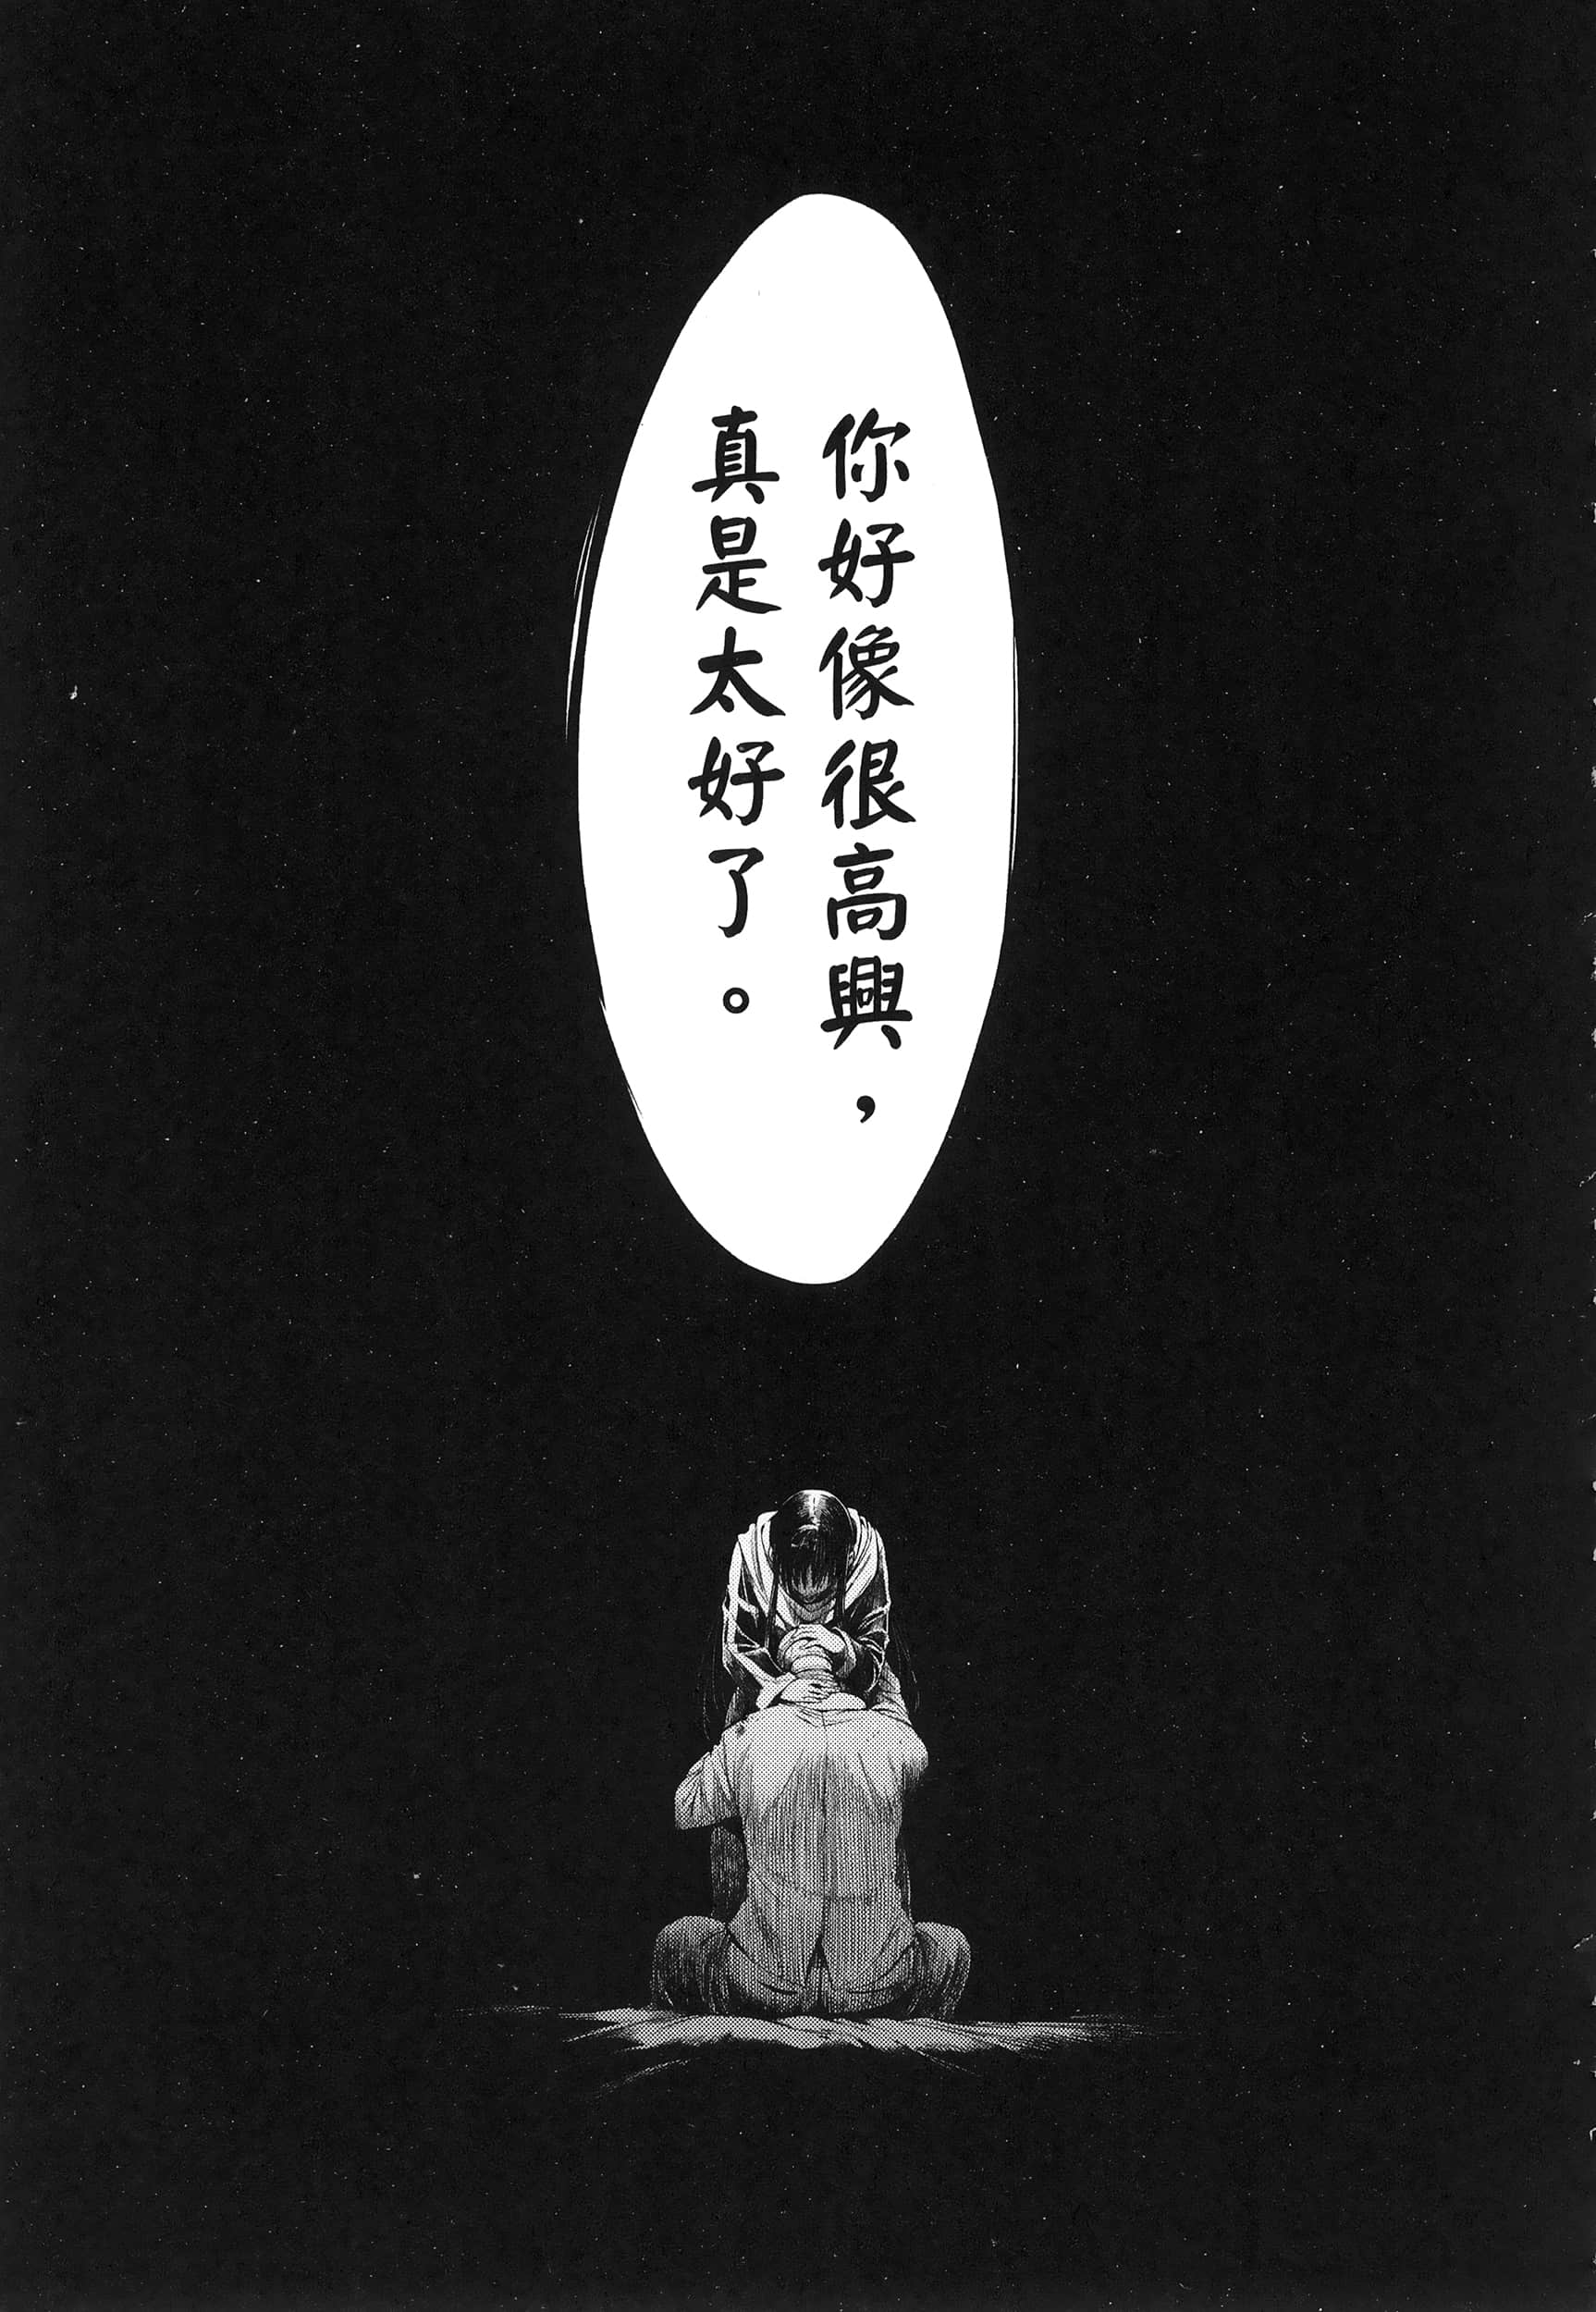 你好像很高興，
真是太好了。